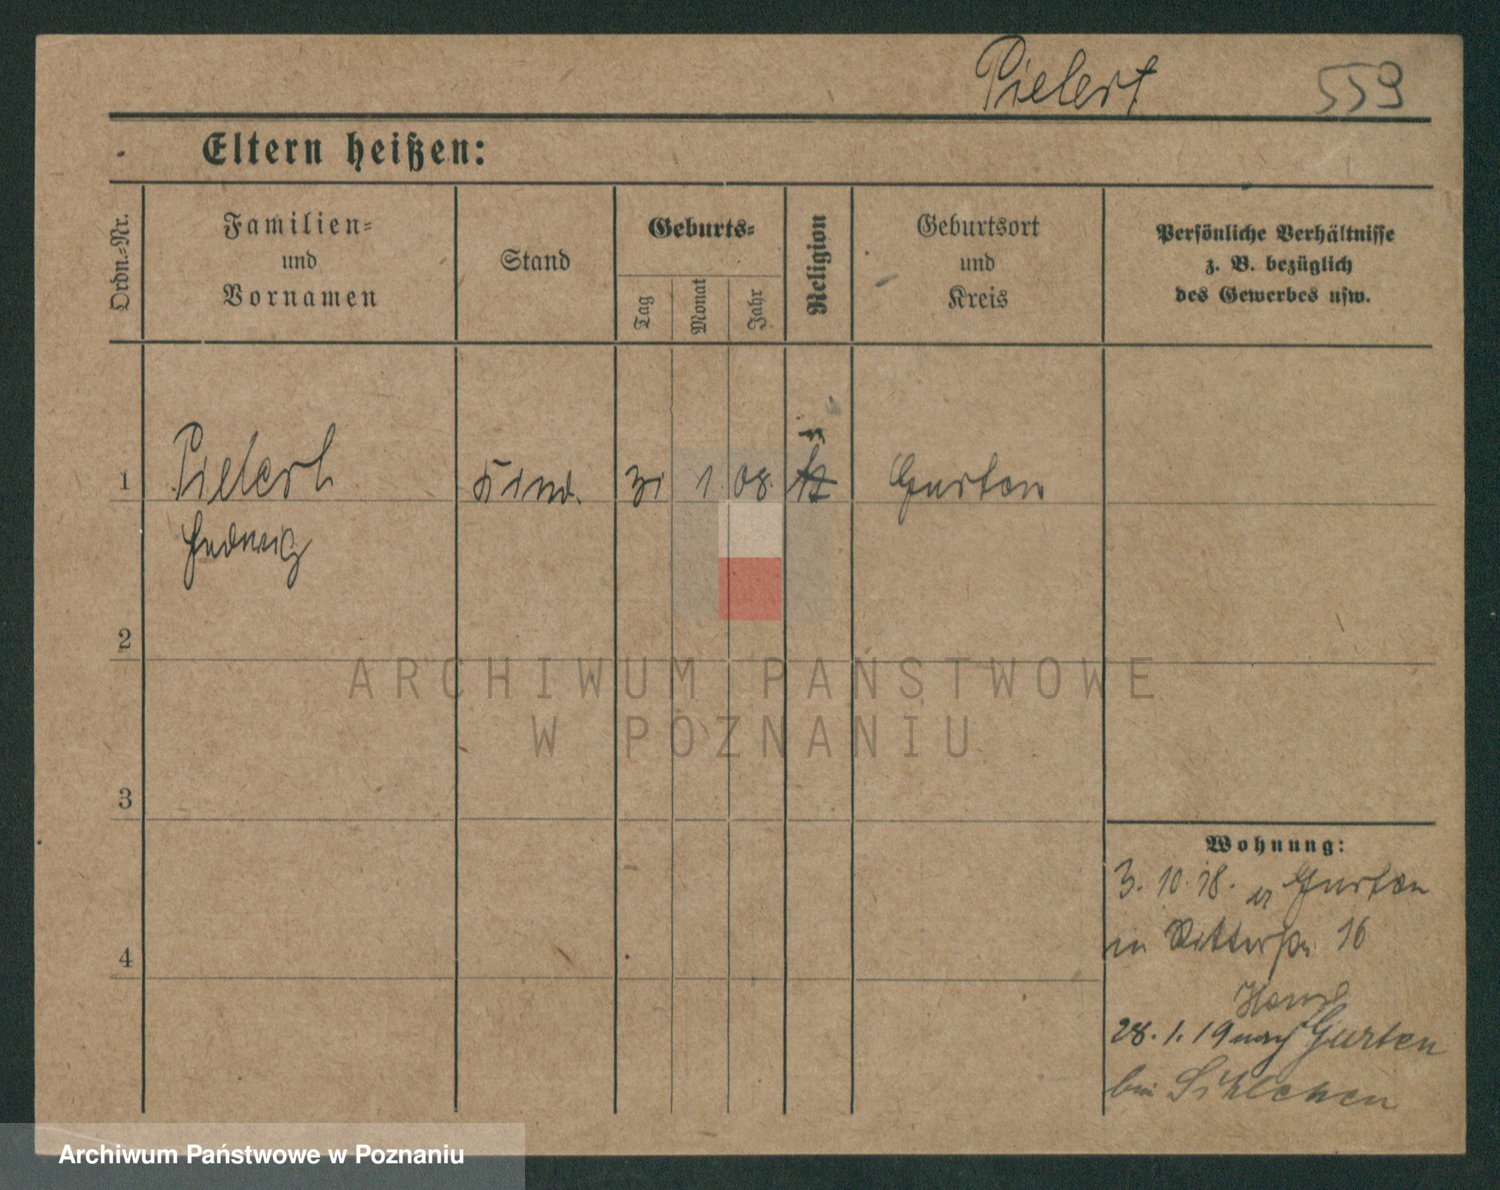 Pielert 559
Eltern heißen:
Ordn.-Nr.
Familien-
und
Vornamen
Stand
Geburts-
Tag
Monat
Jahr
Religion
Geburtsort
und
Kreis
Persönliche Verhältnisse
z. B. bezüglich
des Gewerbes usw.
1 Pielert Kind. 31 1 08. Gurten
Hedwig
2
3
4
Wohnung:
3. 10. 18. Gurten
in Ritterstr. 16
28. 1. 19 nach Gurten
bei
ARCHIWUM PAŃSTWOWE
W POZNANIU
Archiwum Państwowe w Poznaniu